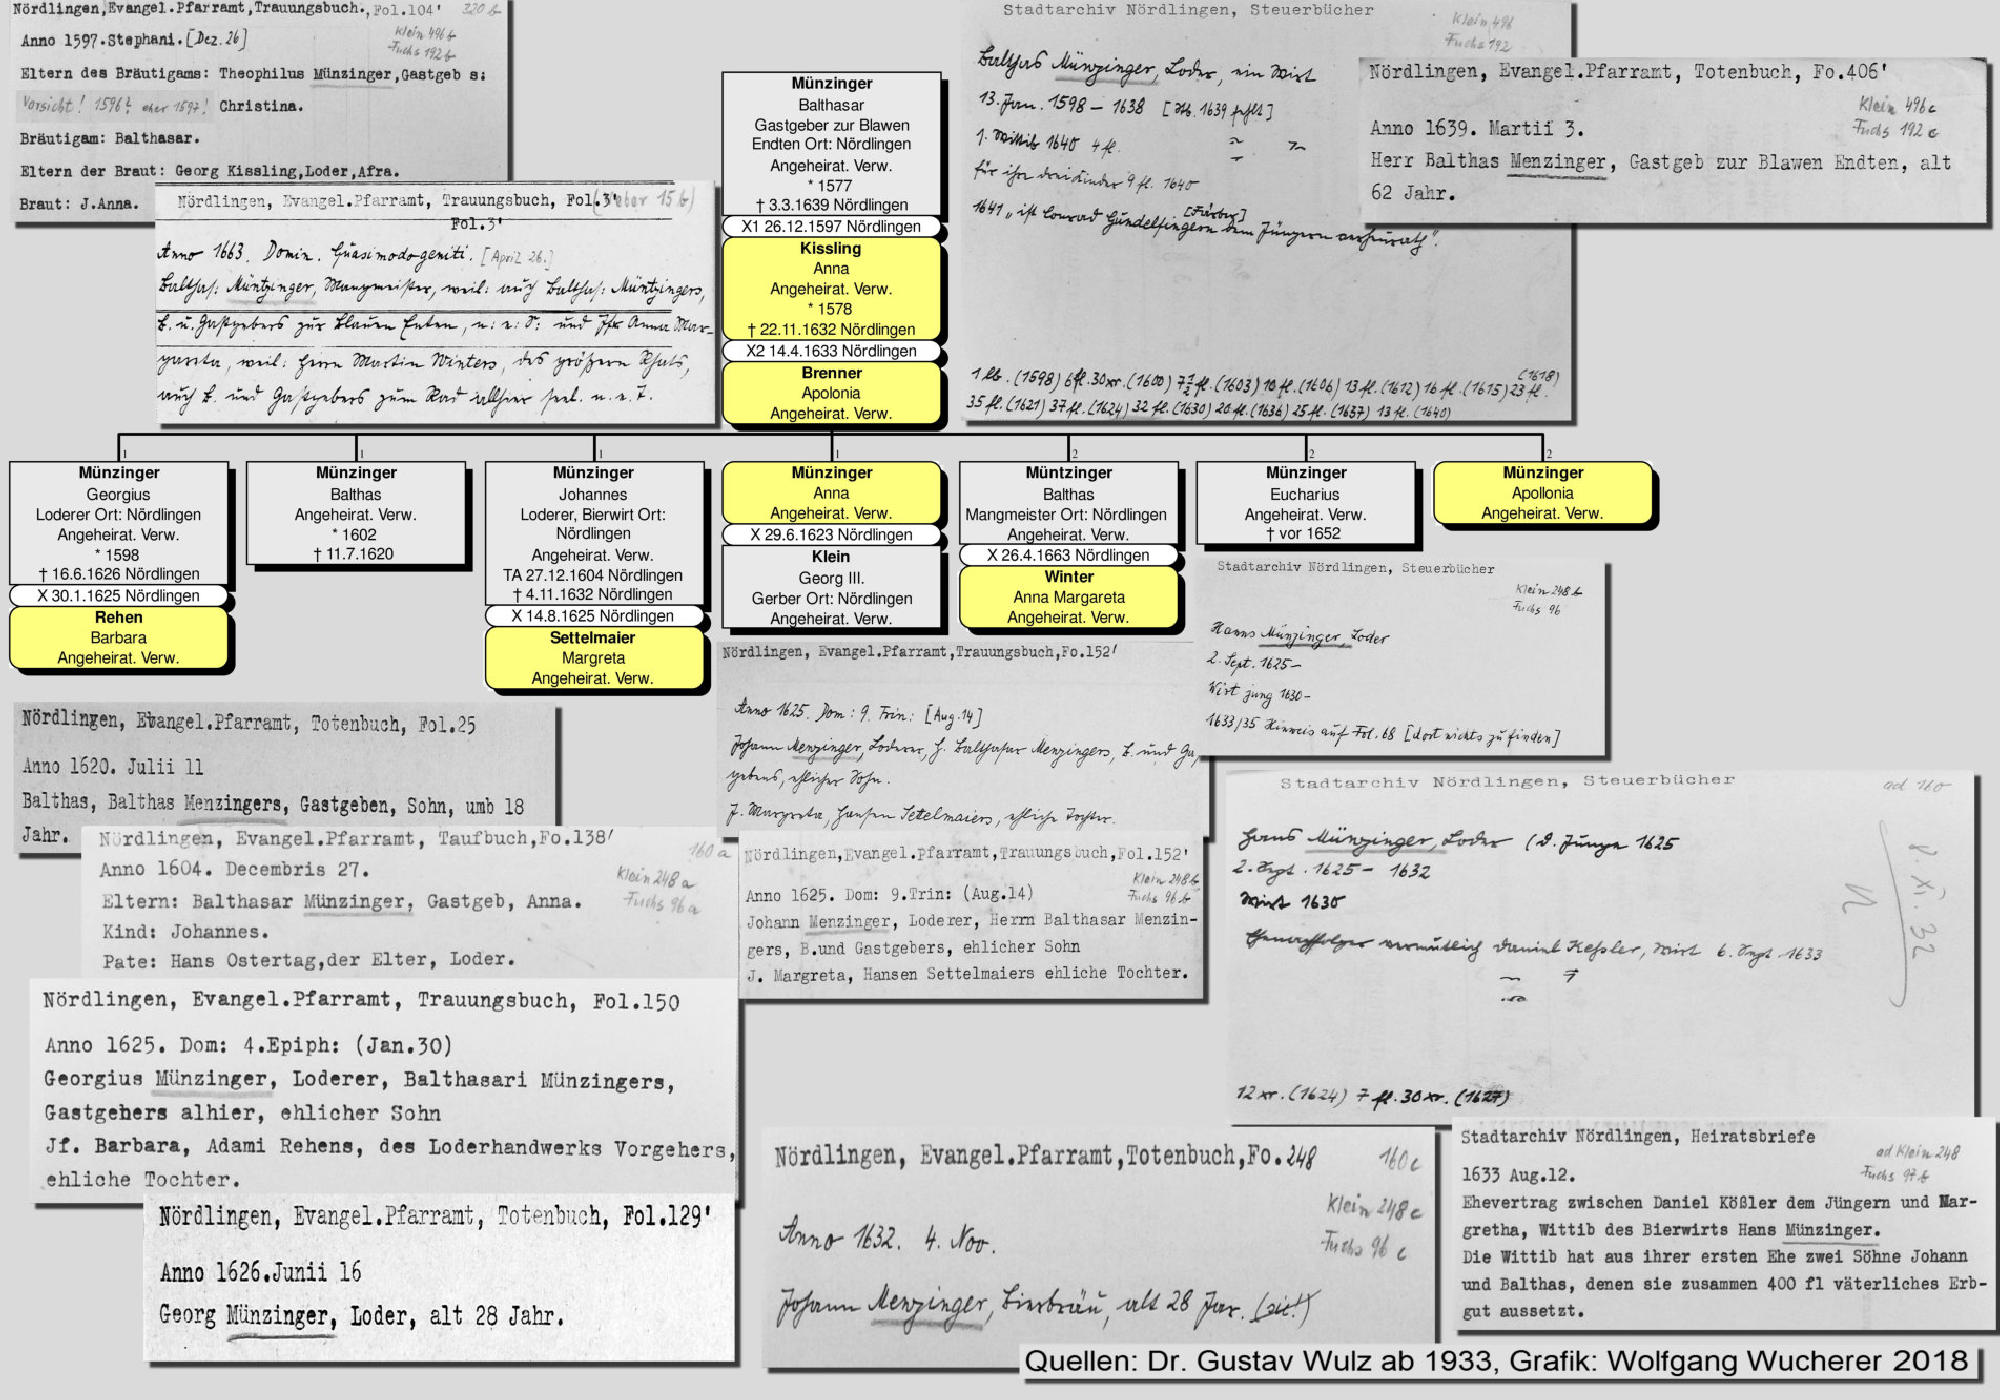 Nördlingen,Evangel.Pfarramt,Trauungsbuch.,Fol.104' 320 b
Klein 496 b
Fuchs 192 b
Anno 1597.Stephani.[Dez.26]
Eltern des Bräutigams: Theophilus Münzinger,Gastgeb s:
Vorsicht! 1596? eher 1597! Christina.
Bräutigam: Balthasar.
Eltern der Braut: Georg Kissling,Loder,Afra.
Braut: J.Anna.
Nördlingen, Evangel.Pfarramt, Trauungsbuch, Fol.3'
Fol.3'
Anno 1663. Domin. Quasimodogeniti. [April 26.]
Balthas: Müntzinger, Mangmeister, weil: auch Balthas: Müntzingers,
B. u. Gastgebers zur Blauen Enten, u: e: S: und Jfr Anna Mar-
gareta, weil: Herrn Martin Winters, des größern Rhats,
auch B. und Gastgebers zum Rad allhier seel. u. e. T.
Münzinger
Balthasar
Gastgeber zur Blawen
Endten Ort: Nördlingen
Angeheirat. Verw.
* 1577
† 3.3.1639 Nördlingen
X1 26.12.1597 Nördlingen
Kissling
Anna
Angeheirat. Verw.
* 1578
† 22.11.1632 Nördlingen
X2 14.4.1633 Nördlingen
Brenner
Apolonia
Angeheirat. Verw.
Stadtarchiv Nördlingen, Steuerbücher
Klein 496
Fuchs 192
Balthas Münzinger, Loder, ein Wirt
13. Jan. 1598 – 1638 [Stb. 1639 fehlt]
1. Wittib 1640 4 fl.
für ihre drei Kinder 9 fl. 1640
[Färber]
1641 „ist Conrad Gundelfingern dem Jüngern verheurath".
1 lb. (1598) 6 fl. 30 xr. (1600) 7½ fl. (1603) 10 fl. (1606) 13 fl. (1612) 16 fl. (1615) 23 fl. (1618)
35 fl. (1621) 37 fl. (1624) 32 fl. (1630) 20 fl. (1636) 25 fl. (1637) 13 fl. (1640)
Nördlingen, Evangel.Pfarramt, Totenbuch, Fo.406'
Klein 496c
Fuchs 192 c
Anno 1639. Martii 3.
Herr Balthas Menzinger, Gastgeb zur Blawen Endten, alt
62 Jahr.
1
Münzinger
Georgius
Loderer Ort: Nördlingen
Angeheirat. Verw.
* 1598
† 16.6.1626 Nördlingen
X 30.1.1625 Nördlingen
Rehen
Barbara
Angeheirat. Verw.
1
Münzinger
Balthas
Angeheirat. Verw.
* 1602
† 11.7.1620
1
Münzinger
Johannes
Loderer, Bierwirt Ort:
Nördlingen
Angeheirat. Verw.
TA 27.12.1604 Nördlingen
† 4.11.1632 Nördlingen
X 14.8.1625 Nördlingen
Settelmaier
Margreta
Angeheirat. Verw.
1
Münzinger
Anna
Angeheirat. Verw.
X 29.6.1623 Nördlingen
Klein
Georg III.
Gerber Ort: Nördlingen
Angeheirat. Verw.
2
Müntzinger
Balthas
Mangmeister Ort: Nördlingen
Angeheirat. Verw.
X 26.4.1663 Nördlingen
Winter
Anna Margareta
Angeheirat. Verw.
2
Münzinger
Eucharius
Angeheirat. Verw.
† vor 1652
2
Münzinger
Apollonia
Angeheirat. Verw.
Stadtarchiv Nördlingen, Steuerbücher
Klein 248 b
Fuchs 96
Hanns Münzinger, Loder
2. Sept. 1625–
Wirt jung 1630–
1633/35 Hinweis auf Fol. 68 [dort nichts zu finden]
Nördlingen, Evangel.Pfarramt,Trauungsbuch,Fo.152'
Anno 1625. Dom: 9. Trin: [Aug.14]
Johann Menzinger, Loderer, H. Balthasar Menzingers, B. und Ga
gebens, ehlicher Sohn.
J. Margreta, Hansen Setelmaiers, ehliche Tochter.
Nördlingen, Evangel.Pfarramt, Totenbuch, Fol.25
Anno 1620. Julii 11
Balthas, Balthas Menzingers, Gastgeben, Sohn, umb 18
Jahr.
Nördlingen, Evangel.Pfarramt, Taufbuch,Fo.138'
160 a
Anno 1604. Decembris 27.
Klein 248 a
Fuchs 96 a
Eltern: Balthasar Münzinger, Gastgeb, Anna.
Kind: Johannes.
Pate: Hans Ostertag,der Elter, Loder.
Nördlingen,Evangel.Pfarramt,Trauungsbuch,Fol.152'
Klein 248 b
Fuchs 96 b
Anno 1625. Dom: 9.Trin: (Aug.14)
Johann Menzinger, Loderer, Herrn Balthasar Menzin-
gers, B.und Gastgebers, ehlicher Sohn
J. Margreta, Hansen Settelmaiers ehliche Tochter.
Stadtarchiv Nördlingen, Steuerbücher
ad 160
Hans Münzinger, Loder (d. Junge 1625
2. Sept. 1625 – 1632
Wirt 1630
vermutlich Daniel Keßler, Wirt 6. Sept. 1633
12 xr. (1624) 7 fl. 30 xr. (1627)
Nördlingen, Evangel.Pfarramt, Trauungsbuch, Fol.150
Anno 1625. Dom: 4.Epiph: (Jan.30)
Georgius Münzinger, Loderer, Balthasari Münzingers,
Gastgebers alhier, ehlicher Sohn
Jf. Barbara, Adami Rehens, des Loderhandwerks Vorgehers,
ehliche Tochter.
Nördlingen, Evangel.Pfarramt, Totenbuch, Fol.129'
Anno 1626.Junii 16
Georg Münzinger, Loder, alt 28 Jahr.
Nördlingen, Evangel.Pfarramt,Totenbuch,Fo.248
160 c
Klein 248 c
Fuchs 96 c
Anno 1632. 4. Nov.
Johann Menzinger, Bierbräu, alt 28 Jar. (sic!)
Stadtarchiv Nördlingen, Heiratsbriefe
ad Klein 248
Fuchs 97 b
1633 Aug.12.
Ehevertrag zwischen Daniel Kößler dem Jüngern und Mar-
gretha, Wittib des Bierwirts Hans Münzinger.
Die Wittib hat aus ihrer ersten Ehe zwei Söhne Johann
und Balthas, denen sie zusammen 400 fl väterliches Erb-
gut aussetzt.
Quellen: Dr. Gustav Wulz ab 1933, Grafik: Wolfgang Wucherer 2018